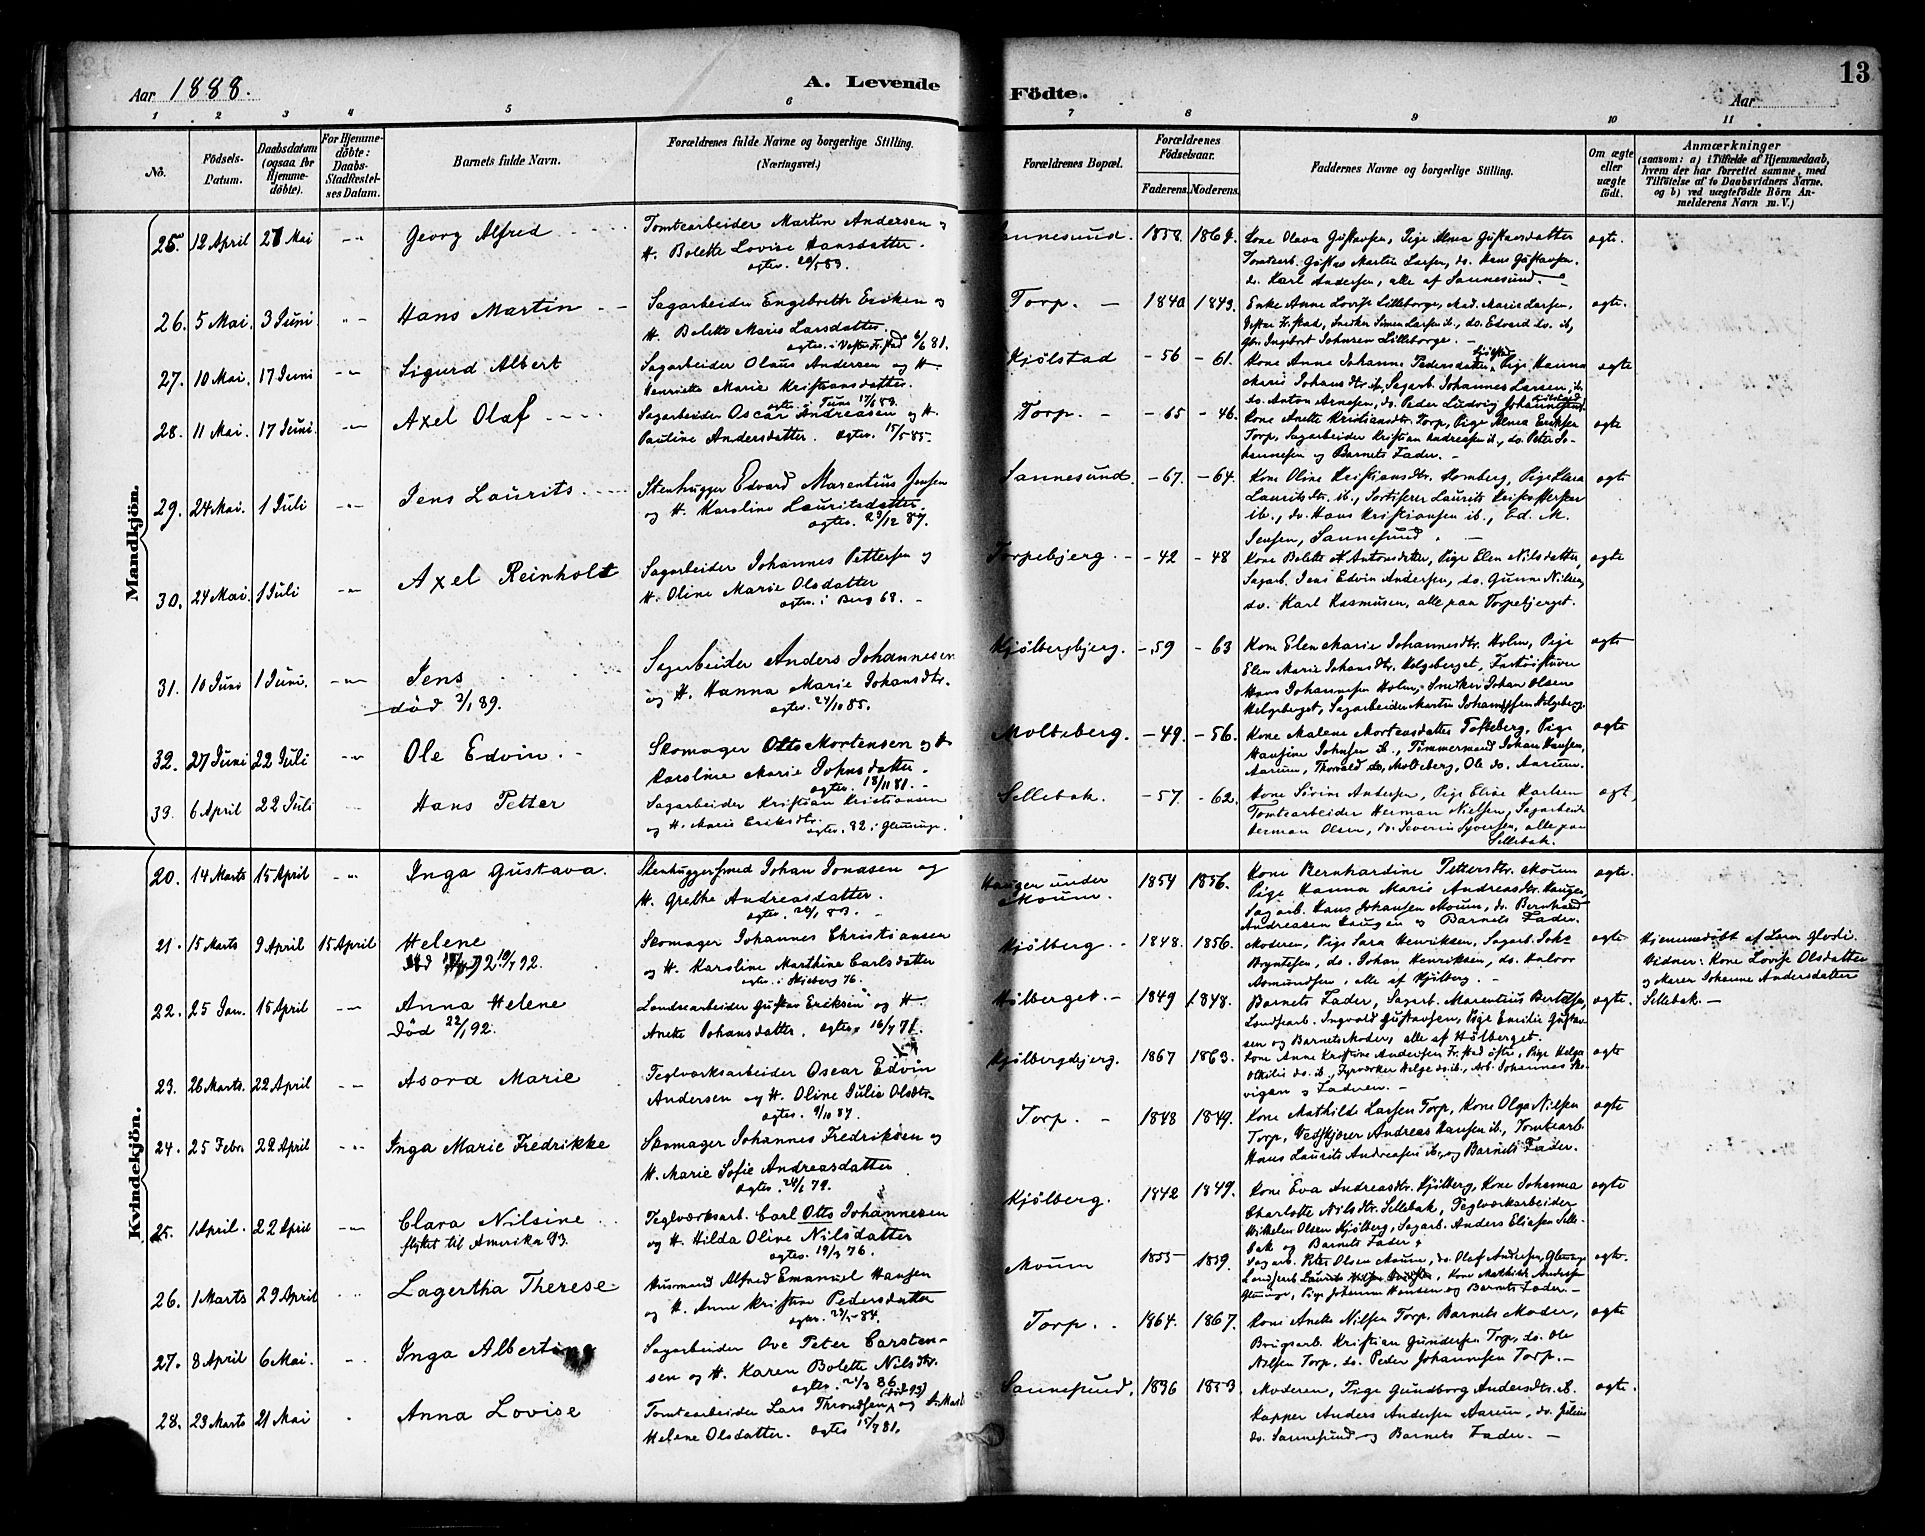 Aar 1888.
A. Levende
Födte.
Aar
13
1 2 3 4 5 6 7 8 9 10 11
No.
Födsels-Datum.
Daabsdatum (ogsaa for Hjemmedöbte).
For Hjemmedöbte: Daabs-Stadfæstelses Datum.
Barnets fulde Navn.
Forældrenes fulde Navne og borgerlige Stilling. (Næringsvei.)
Forældrenes Bopæl.
Forældrenes Födselsaar.
Faderens. Moderens.
Faddernes Navne og borgerlige Stilling.
Om ægte eller uægte födt.
Anmærkninger (saasom: a) i Tilfælde af Hjemmedaab, hvem der har forrettet samme, med Tilföielse af to Daabsvidners Navne, og b) ved uægtefödte Börn Anmelderens Navn m. V.)
Mandkjön.
25. 12 April 27 Mai Georg Alfred
Tomtearbeider Martin Andersen og
H. Bolette Lovise Hansdatter.
ægtev. 20/5 83.
Sannesund. 1858. 1864.
Kone Olava Gustavsen, Pige Alma Gustavsdatter
Tomtearb. Gustav Martin Larsen, do. Hans Gustavsen,
do. Karl Andersen, alle af Sannesund.
ægte.
26. 5 Mai. 3 Juni Hans Martin
Sagarbeider Engebreth Eriksen og
H. Bolette Marie Larsdatter.
ægtev. i Vestre Fr.stad 6/6 81.
Torp. 1840 1843.
Enke Anne Lovise Lilleborge, Mad. Marie Larsen,
Vestre Fr.stad, Snedker Simen Larsen ib., do. Edvard do. ib,
Gbr. Ingebort Johnsen Lilleborge.
ægte.
27. 10 Mai. 17 Juni Sigurd Albert
Sagarbeider Olaus Andersen og H.
Henriette Marie Kristiansdatter.
ægtev. i Tune 17/6 83.
Kjølstad - 56 - 61.
Kone Anne Johanne Pedersdatter Kjølstad, Pige Hanna
Marie Johansdtr. ib, Sagarb. Johannes Larsen, ib.
do. Anton Arnesen, do. Peder Ludvig Johannesen
ægte
28. 11 Mai. 17 Juni. Axel Olaf
Sagarbeider Oscar Andreasen og H.
Pauline Andersdatter. ægtev. 15/5 85.
Torp. - 65 - 46.
Kone Anette Kristiansdtr. Torp, Pige Alma Eriksen
Torp, Sagarbeider Kristian Andreasen ib., do. Peter Johannesen og Barnets Fader.
ægte
29. 24 Mai. 1 Juli Jens Laurits
Stenhugger Edvard Marentius Jensen
og H. Karoline Lauritsdatter.
ægtev. 29/12 87.
Sannesund. - 67. - 64.
Kone Oline Kristiansdtr. Homberg, Pige Klara
Lauritsdtr. ib., Sortiserer Laurits Kristoffersen
ib., do. Hans Kristiansen ib., Ed. M.
Jensen, Sannesund.
ægte
30. 24 Mai. 1 Juli Axel Reinholdt
Sagarbeider Johannes Pettersen og
H. Oline Marie Olsdatter
ægtev. i Berg 68.
Torpebjerg. - 42 - 48
Kone Bolette M. Antonsdatter, Pige Elen Nilsdatter,
Sagarb. Jens Edvin Andersen, do. Gunne Nilsen,
do. Karl Rasmusen, alle paa Torpebjerget.
ægte
31. 10 Juni 1 Juni. Jens
død 3/1 89.
Sagarbeider Anders Johannesen
og H. Hanna Marie Johansdtr.
ægtev. 24/10 85.
Kjølbergbjerg. - 59 - 63
Kone Elen Marie Johannesdtr. Holm, Pige
Elen Marie Johansdtr. Helgeberget,
Hans Johannesen Holm, Snedker Johan Olsen
Helgeberget, Sagarbeider Martin Johannesen Helgeberg.
ægte
32. 27 Juni 22 Juli Ole Edvin.
Skomager Otto Mortensen og H.
Karoline Marie Johnsdatter.
ægtev. 18/11 81.
Molteberg. - 49. - 56.
Kone Malene Mortensdatter Tofteberg, Pige
Hansine Johnsen ib., Tømmermand Johan Hansen,
Aarum, Thorvald do, Molteberg, Ole do. Aarum.
ægte
33. 6 April 22 Juli Hans Petter
Sagarbeider Kristian Kristiansen
og H. Marie Eriksdtr.
ægtev. 82 i Glemminge.
Sellebak. - 57. - 62.
Kone Sørine Andersen, Pige Elise Karlsen
Tomtearbeider Herman Nielsen, Sagarbeid.
Herman Olsen, do. Severin Syversen, alle paa
Sellebak.
ægt.
Kvindekjön.
20. 14 Marts 15 April Inga Gustava.
Stenhuggersmed Johan Jonasen og
H. Grethe Andreasdatter.
ægtev. 26/1 83.
Hauger under Moum. 1854 1856.
Kone Bernhardine Pettersdtr. Moum
Pige Hanna Marie Andreasdtr. Hauger,
Sagarb. Hans Johansen Moum, do. Bernhard
Andreasen Haugen og Barnets Fader.
ægte.
21. 15 Marts 9 April 15 April Helene
død 19/7 92.
Skomager Johannes Christiansen
og H. Karoline Marthine Carlsdatter
ægtev. i Skjeberg 76.
Kjølberg. 1848. 1856.
Moderen, Pige Sara Henriksen, Sagarb. Johs
Bryntesen, do. Johan Henriksen, do. Halvor
Asmundsen, alle af Kjølberg.
ægte
Hjemmedøbt af Lars Glodi.
Vidner: Kone Lovise Olsdatter
og Maren Johanne Andersdatter
Sellebak.
22. 25 Jan. 15 April Anna Helene
Død 22/1 92.
Landsarbeider Gustav Eriksen og H.
Anette Johansdatter. ægtev. 16/7 71.
Hølberget. 1849 1848.
Barnets Fader, Sagarb. Marentius Bertelsen,
Landsarb. Ingvald Gustavsen, Pige Emilie Gustavsen og Barnets Moder, alle af Hølberget.
ægte.
23. 26 Marts. 22 April Asora Marie
Teglværksarbeider Oscar Edvin
Andersen og H. Oline Julie Olsdtr.
ægtev. 9/10 87.
Kjølbergbjerg. 1867 1863.
Kone Anne Kristine Andersen Fr.stad østre, Pige Helga
Othilie do. ib., Fyrværker Helge do. ib., Arb. Johannes
og Faderen.
ægte
24. 25 Febr. 22 April Inga Marie Fredrikke
Skomager Johannes Fredriksen og
H. Marie Sofie Andreasdatter
ægtev. 24/6 79.
Torp. 1848 1849.
Kone Mathilde Larsen Torp, Kone Olga Nilsen
Torp, Vedskjører Andreas Hansen ib., Tomtearb.
Hans Laurits Andreasen ib., og Barnets Fader.
ægte
25. 1 April. 22 April Clara Nilsine
flyttet til Amerika 93.
Teglværksarb. Carl Otto Johannesen
og H. Hilda Oline Nilsdatter
ægtev. 19/3 76.
Kjølberg. 1842 1849.
Kone Eva Andreasdtr. Kjølberg, Kone Johanna
Charlotte Nilsdtr. Sellebak, Teglværkarbeider
Vilhelm Olsen Kjølberg, Sagarb. Anders Eliasen Sellebak og Barnets Fader.
ægte
26. 1 Marts 29 April Lagertha Therese
Husmand Alfred Emanuel Hansen
og H. Anne Kristine Pedersdatter
ægtev. 23/5 84.
Moum 1855 1859.
Sagarb. Peter Olsen Moum, do. Olaf Andersen, Glemminge,
Kone Mathilde Andersen
Glemminge, Pige Johanne Hansen og Barnets Fader.
ægte.
27. 8 April 6 Mai. Inga Albertine
Sagarbeider Ove Peter Carstensen og H. Karen Bolette Nilsdtr.
ægtev. 21/3 86
Torp. 1864. 1867.
Kone Anette Nilsen Torp, Barnets Moder,
Brugsarb. Kristian Gundersen Torp, do. Ole
Nilsen Torp, do. Peder Johannesen Torp.
ægte
28. 23 Marts 21 Mai Anna Lovise
Tomtearbeider Lars Throndsen (død 93) og H. Marte
Helene Olsdatter. ægtev 15/7 81.
Sannesund. 1836 1853.
Moderen, Pige Gundborg Andersdtr. ib.
Kapper Anders Andersen Aarum, do. Julius
do. Sannesund og Barnets Fader.
ægte.